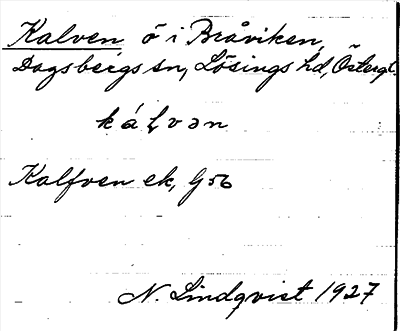 Kalven ö i Bråviken,
Dagsbergs sn, Lösings hd, Östergl.
kálvən
Kalfven ek, G56
N. Lindqvist 1927